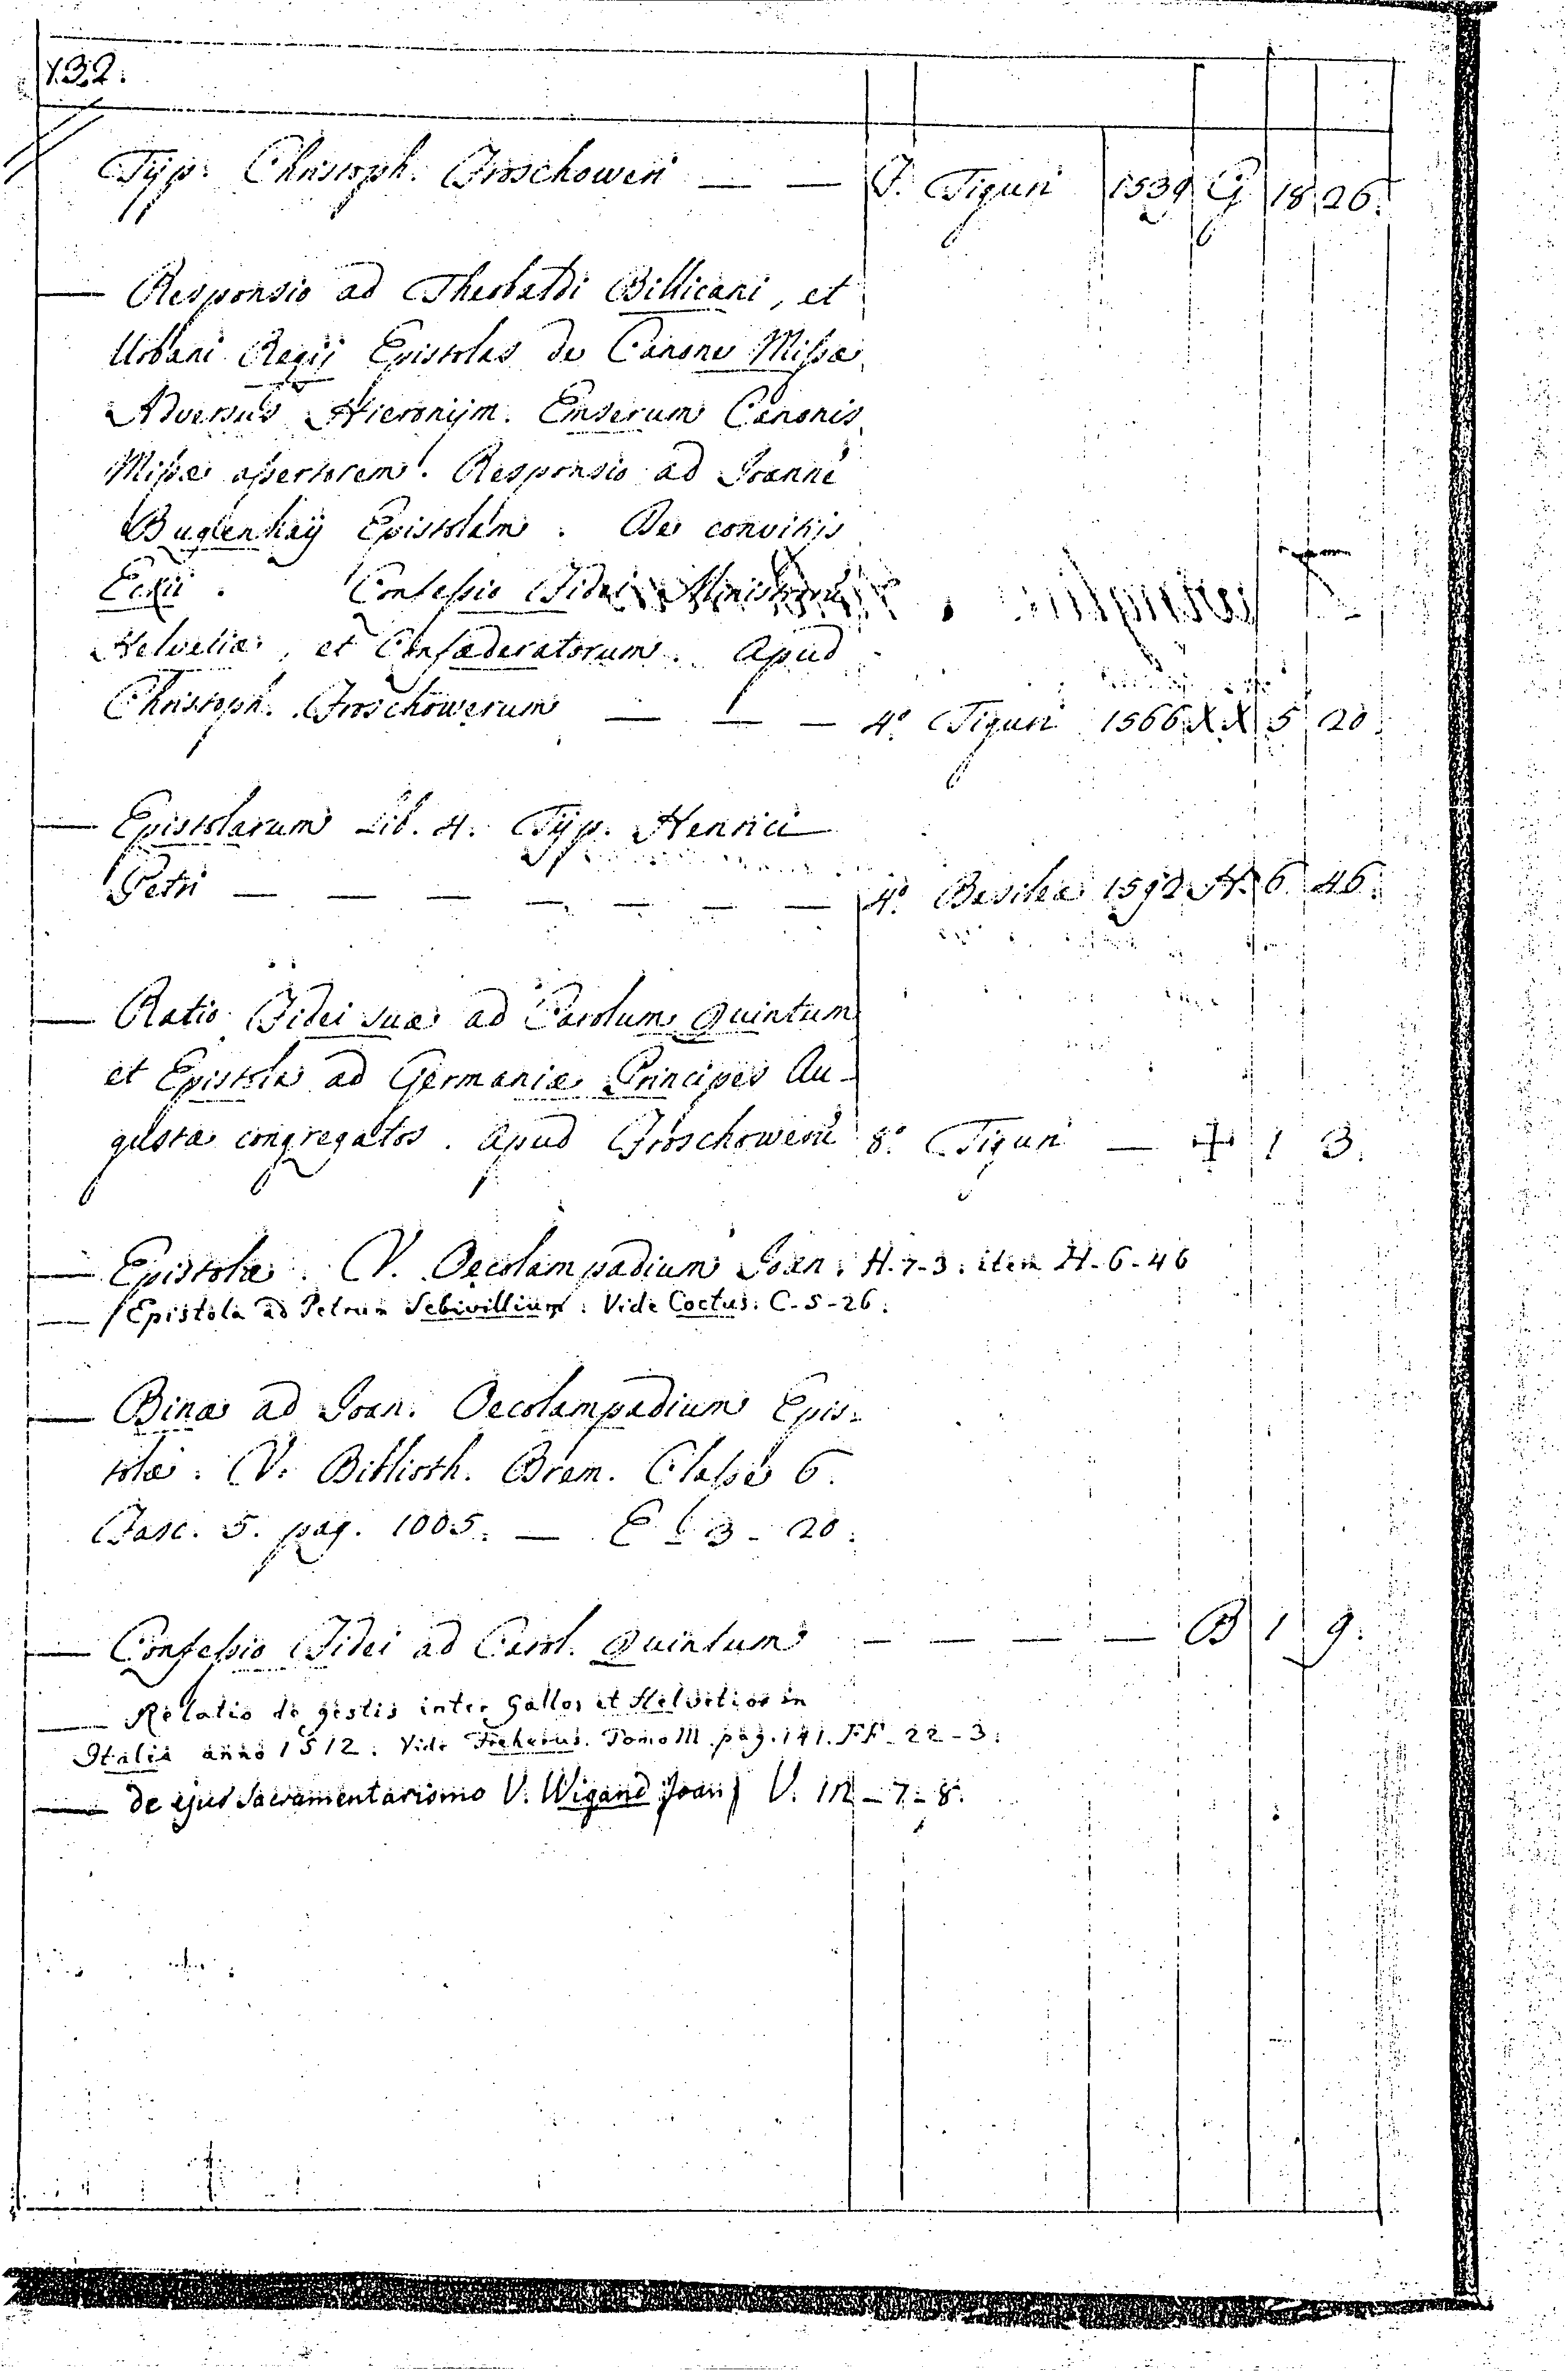 132.
Typ. Christoph. Froschoweri — — F. Tiguri 1539 G 18 26.
— Responsio ad Theobaldi Billicani, et
Urbani Regii Epistolas de Canone Missæ
Adversus Hieronym. Emserum Canonis
Missæ assertorem. Responsio ad Joannē
Bugenhagij Epistolam. De convitijs
Eckii. Confessio Fidei Ministrorū
Helveliæ, et Confœderatorum. Apud
Christoph. Froschowerum — — — 4.º Tiguri 1566 XX 5 20.
— Epistolarum Lib. 4. Typ. Henrici
Petri — — — — — — — 4.º Basileæ 1592 H. 6 46.
— Ratio Fidei suæ ad Carolum Quintum
et Epistola ad Germaniæ Principes Au-
gustæ congregatos. Apud Froschowerū 8.º Tiguri — + 1 3.
— Epistolæ. V. Oecolampadium Joan. H-7-3. item H-6-46
— Epistola ad Petrum Sebivillium: Vide Coctus: C-5-26.
— Binæ ad Joan. Oecolampadium Epis-
tolæ. V. Biblioth. Brem. Classe 6.
Fasc. 5. pag. 1005. — E 3 - 20.
— Confessio Fidei ad Carol. Quintum — — — — B 1 9.
— Relatio de gestis inter Gallos et Helvetios in
Italia anno 1512. Vide Freherus. Tomo III. pag. 141. FF-22-3.
— de ejus Sacramentarismo V. Wigand Joan V. in -7-8.